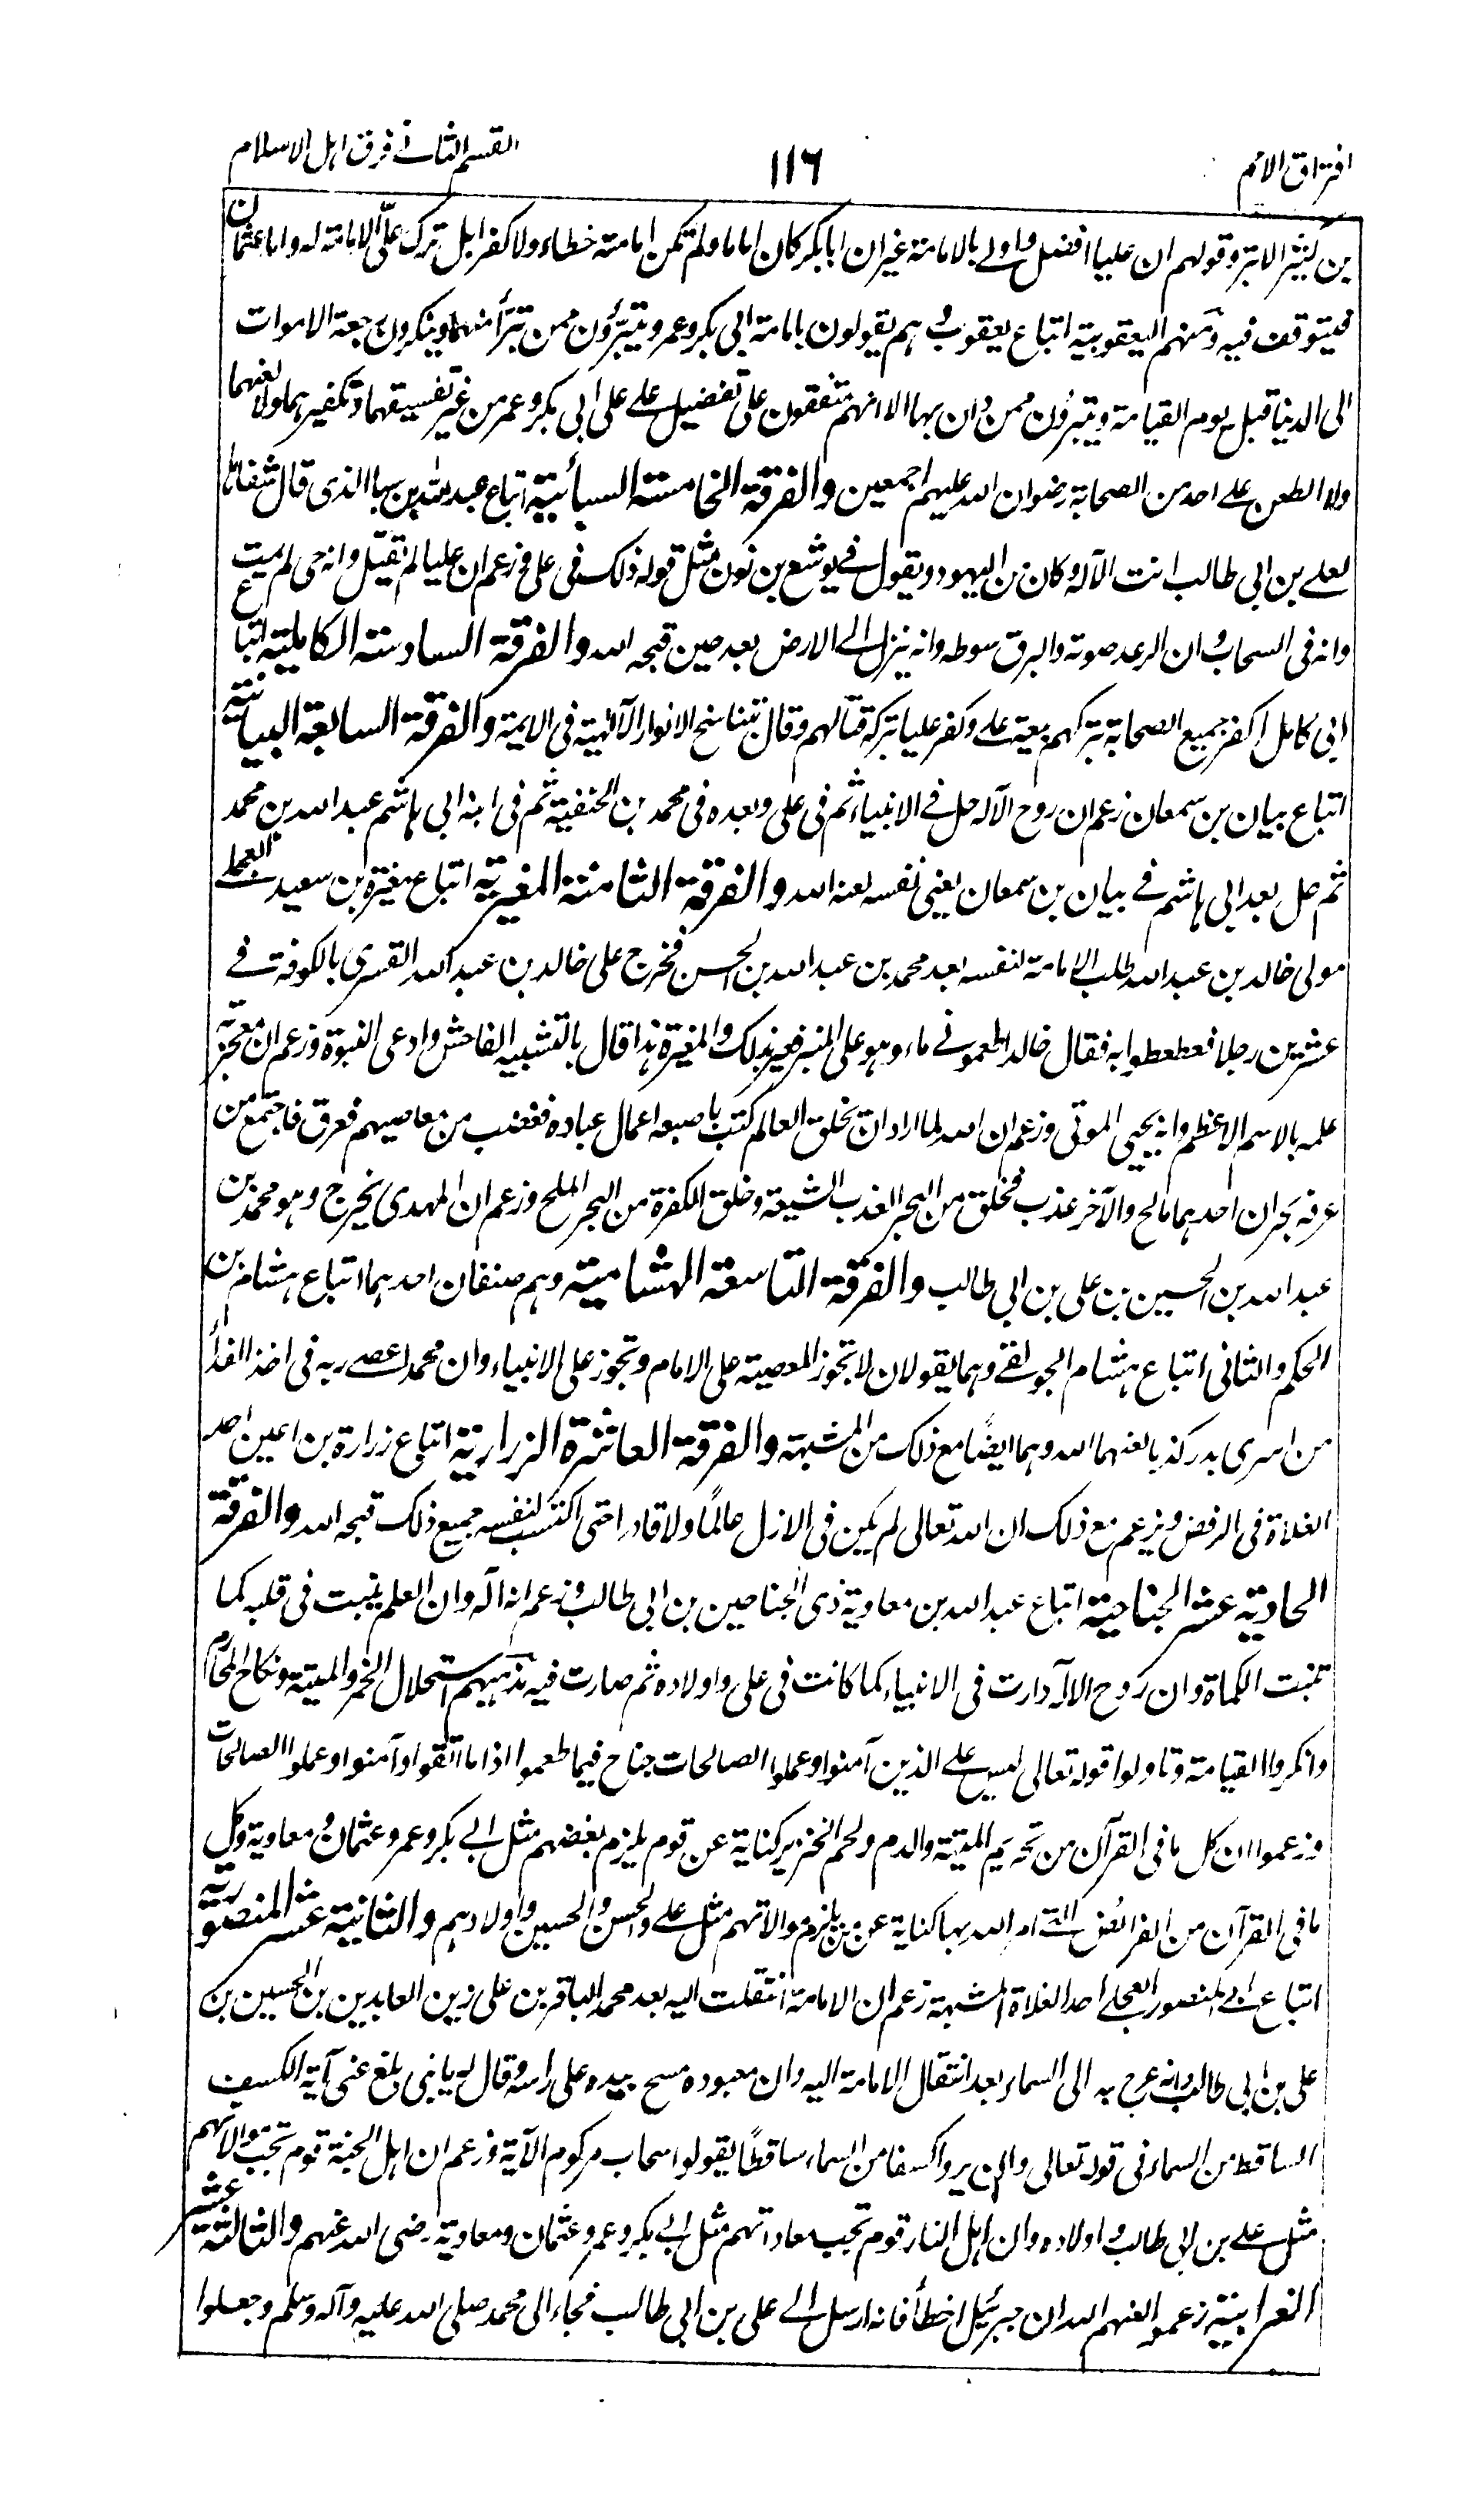 افتراق الامم
١١٦
القسم الثانى فرق اهل الاسلام
بن كثير الابتر وقولهم ان عليا افضل واولى بالامامة غير ان ابا بكر كان اماما ولم تكن امامته خطاء ولا كفرا بل ترك علىّ الامامة له واما عثمان
فيتوقف فيه ومنهم اليعقوبية اتباع يعقوب وهم يقولون بامامة ابى بكر وعمر ويتبرّؤن ممن تبرأ منهما وينكرون رجعة الاموات
الى الدنيا قبل يوم القيامة ويتبرؤن ممن دان بها الا انهم متفقون على تفضيل على على ابى بكر وعمر من غير تفسيقهما وتكفيرهما ولا لعنهما
ولا الطعن على احد من الصحابة رضوان الله عليهم اجمعين والفرقة الخامسة السبائية اتباع عبد الله بن سبا الذى قال شفاها
لعلى بن ابى طالب انت الآله وكان من اليهود ويقول فى يوشع بن نون مثل قوله ذلك فى على وزعم ان عليا لم يقتل وانه حى لم يمت
وانه فى السحاب وان الرعد صوته والبرق سوطه وانه ينزل الى الارض بعد حين قبحه الله والفرقة السادسة الكاملية اتباع
ابى كامل اكفر جميع الصحابة بتركهم بيعة على وكفر عليا بتركه قتالهم وقال بتناسخ الانوار الآلهية فى الايمة والفرقة السابعة البيانية
اتباع بيان بن سمعان زعم ان روح الآله حل فى الانبياء ثم فى على وبعده فى محمد بن الحنفية ثم فى ابنه ابى هاشم عبد الله بن محمد
ثم حل بعد ابى هاشم فى بيان بن سمعان يعنى نفسه لعنه الله والفرقة الثامنة المغيرية اتباع مغيرة بن سعيد العجلى
مولى خالد بن عبد الله طلب الامامة لنفسه بعد محمد بن عبد الله بن الحسن فخرج على خالد بن عبد الله القسرى بالكوفة فى
عشرين رجلا فعطعطوا به فقال خالد اطعمونى ماء وهو على المنبر فعير بذلك والمغيرة هذا قال بالتشبيه الفاحش وادعى النبوة وزعم ان معجزته
علمه بالاسم الاعظم وانه يحيى الموتى وزعم ان الله لما اراد ان يخلق العالم كتب باصبعه اعمال عباده فغضب من معاصيهم فعرق فاجتمع من
عرقه بحران احدهما مالح والآخر عذب فخلق من البحر العذب الشيعة وخلق الكفرة من البحر الملح وزعم ان المهدى يخرج وهو محمد بن
عبد الله بن الحسين بن على بن ابى طالب والفرقة التاسعة الهشامية وهم صنفان احدهما اتباع هشام بن
الحكم والثانى اتباع هشام الجولقى وهما يقولان لا تجوز المعصية على الامام وتجوز على الانبياء وان محمدا عصى ربه فى اخذ الفداء
من اسرى بدر كذبا لعنهما الله وهما ايضًا مع ذلك من المشبهة والفرقة العاشرة الزرارية اتباع زرارة بن اعين احد
الغلاة فى الرفض ويزعم مع ذلك ان الله تعالى لم يكن فى الازل عالمًا ولا قادرا حتى اكتسب لنفسه جميع ذلك قبحه الله والفرقة
الحادية عشر الجناحية اتباع عبد الله بن معاوية ذى الجناحين بن ابى طالب وزعم انه آله وان العلم ينبت فى قلبه كما
تنبت الكماة وان روح الاله دارت فى الانبياء كما كانت فى على واولاده ثم صارت فيه مذهبهم استحلال الخمر والميتة ونكاح المحارم
وانكروا القيامة وتاولوا قوله تعالى ليس على الذين آمنوا وعملوا الصالحات جناح فيما طعموا اذا ما اتقوا وآمنوا وعملوا الصالحات
وزعموا ان كل ما فى القرآن من تحريم الميتة والدم ولحم الخنزير كناية عن قوم يلزم بغضهم مثل ابى بكر وعمر وعثمان ومعاوية وكل
ما فى القرآن من الفرائض التى امر الله بها كناية عن من يلزم موالاتهم مثل على والحسن والحسين واولادهم والثانية عشر المنصورية
اتباع ابى المنصور العجلى احد الغلاة المشبهة زعم ان الامامة انتقلت اليه بعد محمد الباقر بن على زين العابدين بن الحسين بن
على بن ابى طالب وانه عرج به الى السماء بعد انتقال الامامة اليه وان معبوده مسح بيده على راسه وقال له يا نبى بلغ عنى آية الكسف
الساقط من السماء فى قوله تعالى وان يروا كسفا من السماء ساقطًا يقولوا سحاب مركوم الآية وزعم ان اهل الجنة قوم تجب موالاتهم
مثل على بن ابى طالب واولاده وان اهل النار قوم تجب معاداتهم مثل ابى بكر وعمر وعثمان ومعاوية رضى الله عنهم والثالثة عشر
الغرابية زعموا لعنهم الله ان جبرئيل اخطأ فانه ارسل الى على بن ابى طالب فجاء الى محمد صلى الله عليه وآله وسلم وجعلوا